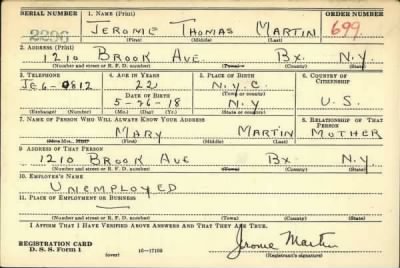 SERIAL NUMBER 1. NAME (Print) ORDER NUMBER
2296 JEROME THOMAS MARTIN 699
(First) (Middle) (Last)
2. ADDRESS (Print)
1210 BROOK AVE. BX. N.Y.
(Number and street or R. F. D. number) (Town) (County) (State)
3. TELEPHONE 4. AGE IN YEARS 5. PLACE OF BIRTH 6. COUNTRY OF CITIZENSHIP
JE6-0812 22 N.Y.C.
DATE OF BIRTH
5-26-18 N.Y U.S.
(Exchange) (Number) (Mo.) (Day) (Yr.) (State or county)
7. NAME OF PERSON WHO WILL ALWAYS KNOW YOUR ADDRESS 8. RELATIONSHIP OF THAT PERSON
MARY MARTIN MOTHER
(Mr., Mrs., Miss) (First) (Middle) (Last)
9. ADDRESS OF THAT PERSON
1210 BROOK AVE BX. N.Y.
(Number and street or R. F. D. number) (Town) (County) (State)
10. EMPLOYER'S NAME
UNEMPLOYED
11. PLACE OF EMPLOYMENT OR BUSINESS
(Number and street or R. F. D. number) (Town) (County) (State)
I AFFIRM THAT I HAVE VERIFIED ABOVE ANSWERS AND THAT THEY ARE TRUE.
REGISTRATION CARD
D. S. S. Form 1 (over) 16—17105 Jerome Martin
(Registrant's signature)